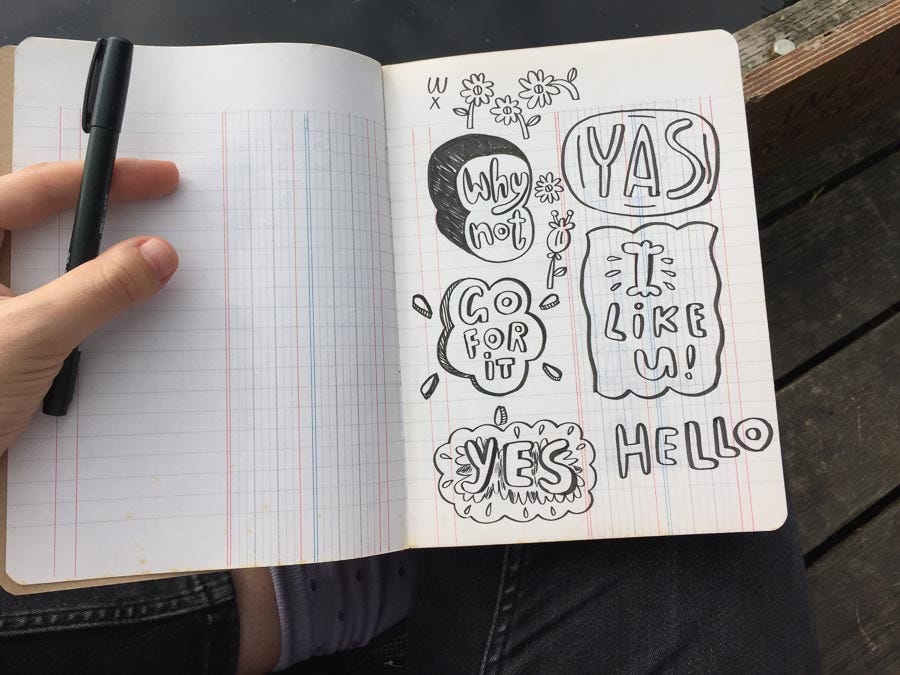 W
X
Why
not
YAS
GO
FOR
iT
I
LiKE
U!
YES
HELLO